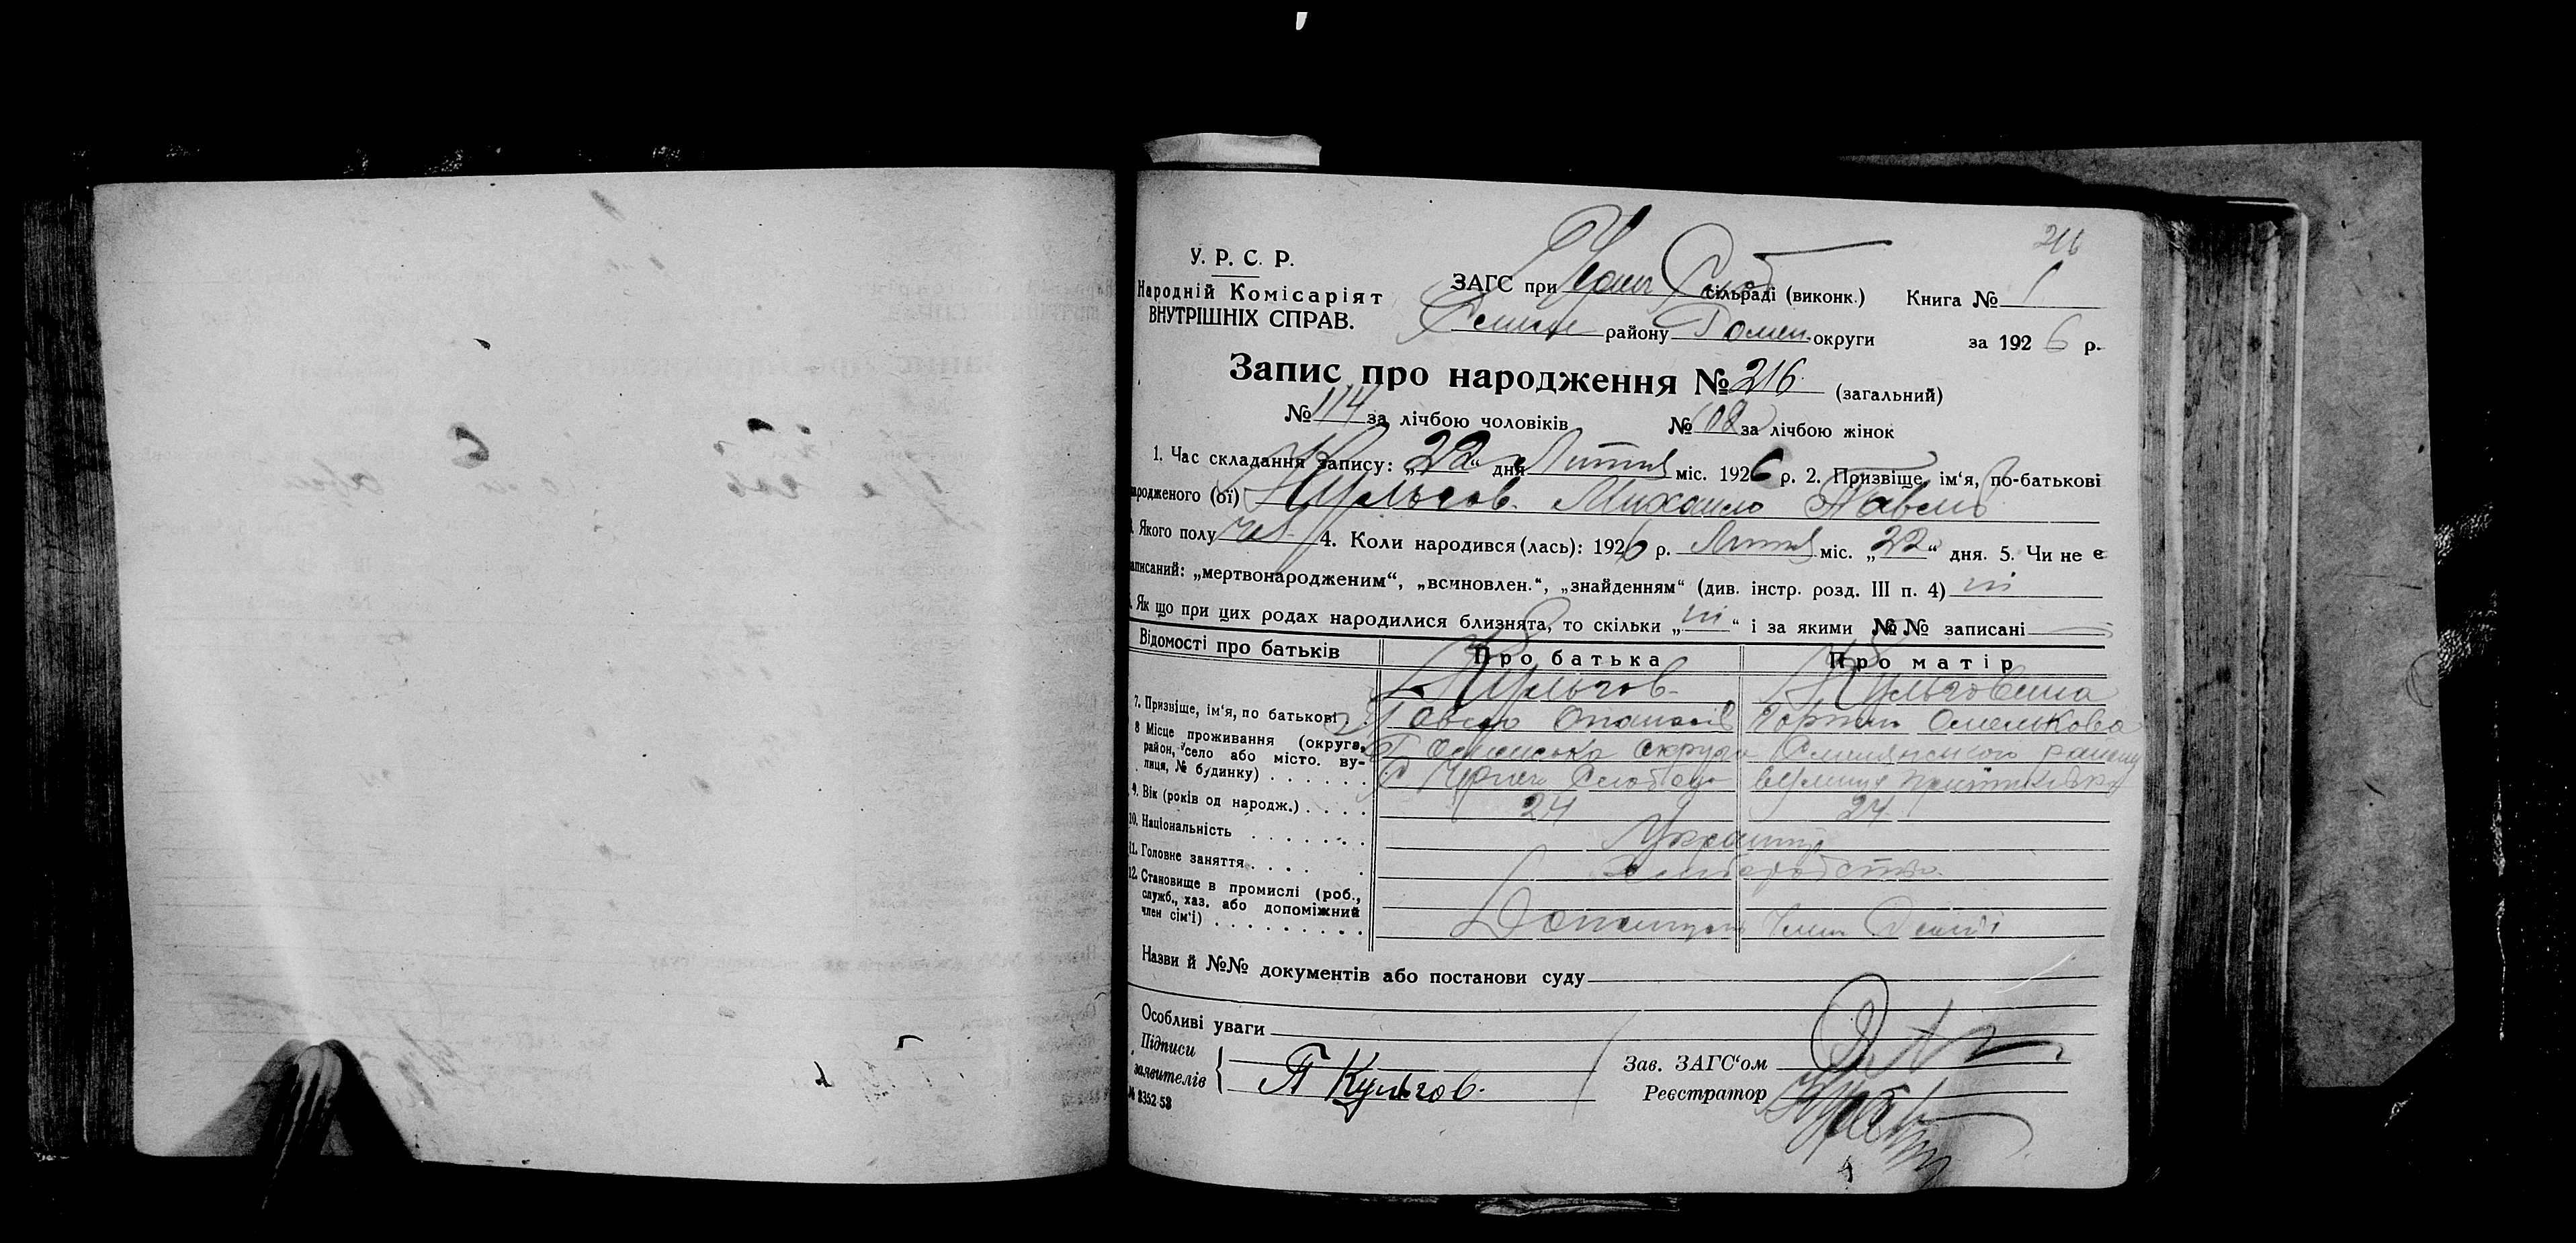 216
У. Р. С. Р.
Народній Комісаріят
ВНУТРІШНІХ СПРАВ.
ЗАГС при Черн Слоб сільраді (виконк.) Книга № 1
району Ромен округи за 1926 р.
Запис про народження № 216 (загальний)
№ 114 за лічбою чоловіків № 108 за лічбою жінок
1. Час складання запису: „22“ дня міс. 1926 р. 2. Призвіще, ім‘я, по-батькові
народженого (ої) Кульгов. Михаило Павлов
Якого полу чол 4. Коли народився (лась): 1926 р. міс. „22“ дня. 5. Чи не є
записаний: „мертвонародженим“, „всиновлен.“, „знайденням“ (див. інстр. розд. III п. 4) ні
Як що при цих родах народилися близнята, то скільки „ні“ і за якими №№ записані
Відомості про батьків Про батька Про матір
7. Призвіще, ім‘я, по батькові Кульгов Кульговина
Павло Опанасів Омелькова
8 Місце проживання (округа, район, село або місто. ву-
лиця, № будинку) Роменська округа района
С Черн Слобода вулиця
9. Вік (років од народж.) 24 24
10. Національність Українці
11. Головне заняття Хліборобство
12. Становище в промислі (роб.,
служб., хаз. або допоміжний
член сім‘ї) Допоміжн Член Семї
Назви й №№ документів або постанови суду
Особливі уваги
Підписи
заявителів П Кульгов.
Зав. ЗАГС‘ом
Реєстратор
№ 8352-53